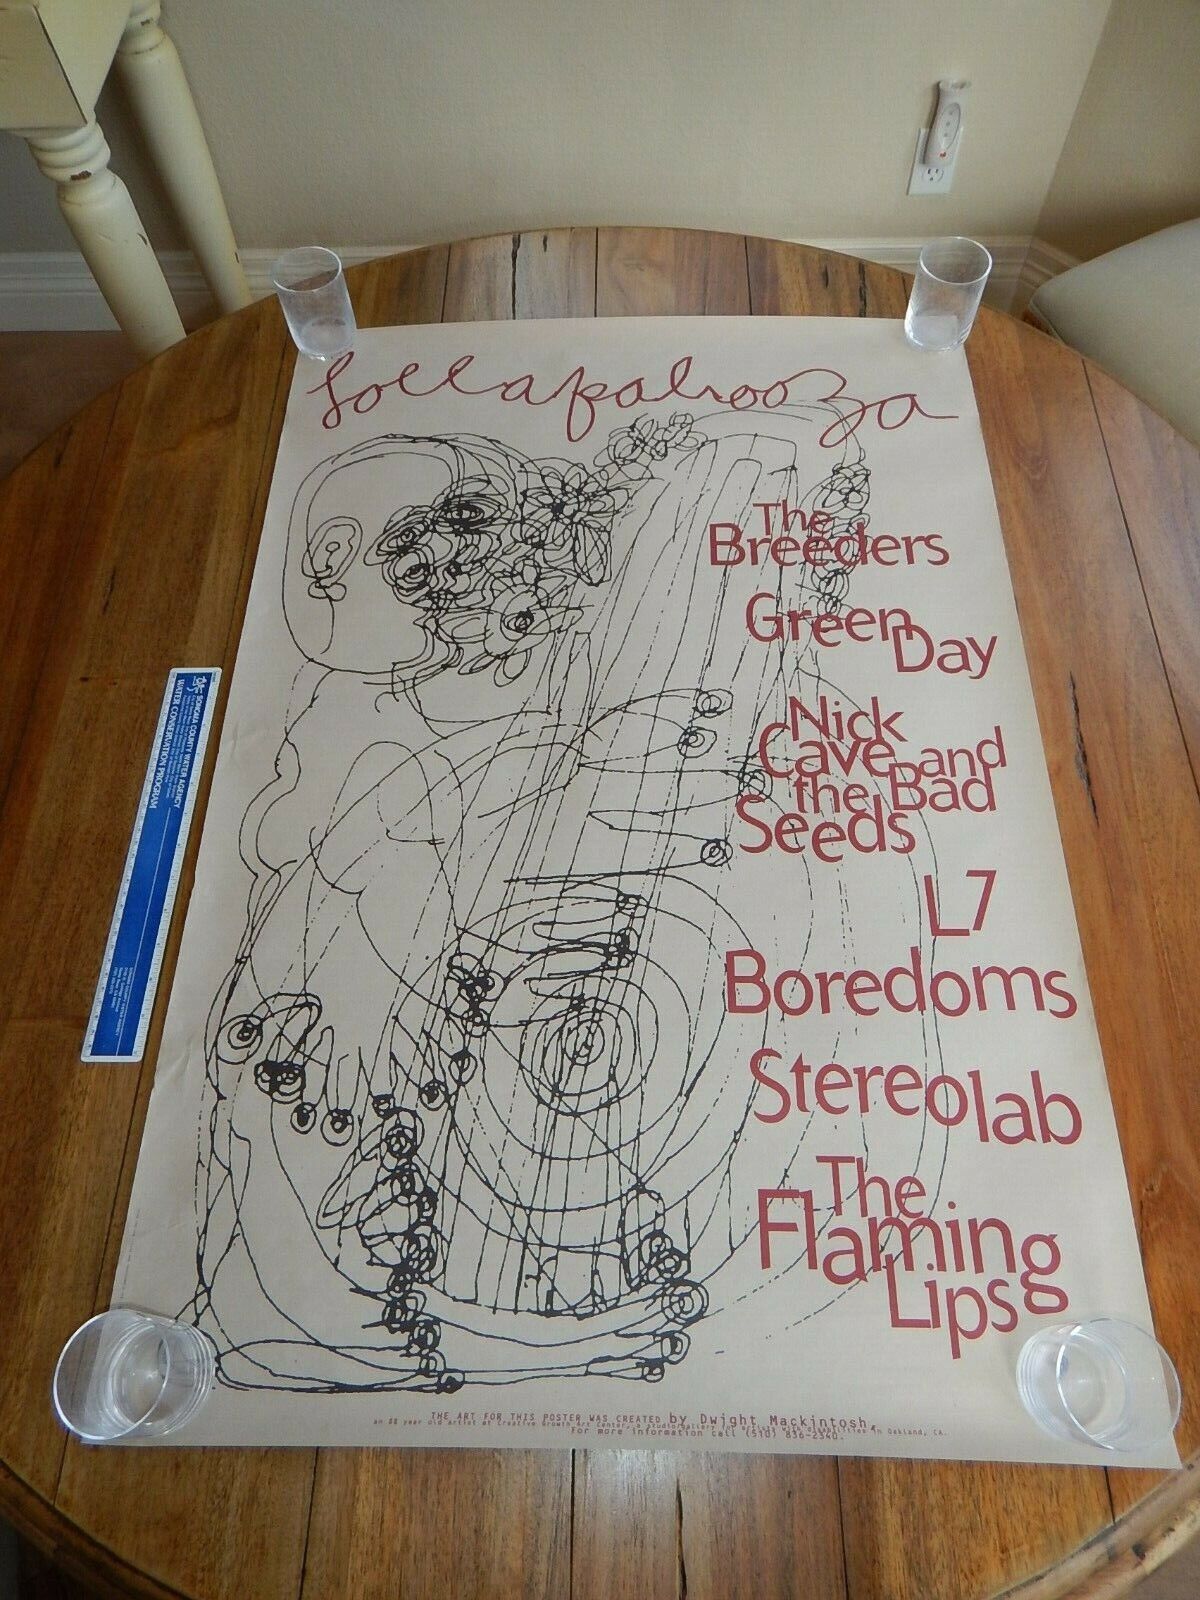 Lollapalooza
The
Breeders
Green
Day
Nick
Cave and
the Bad
Seeds
L7
Boredoms
Stereolab
The
Flaming
Lips
THE ART FOR THIS POSTER WAS CREATED by Dwight Mackintosh,
an 88 year old artist at Creative Growth Art Center, a studio/gallery for artists with disabilities in Oakland, CA.
For more information call (510) 836-2340.
SONOMA COUNTY WATER AGENCY
WATER CONSERVATION PROGRAM